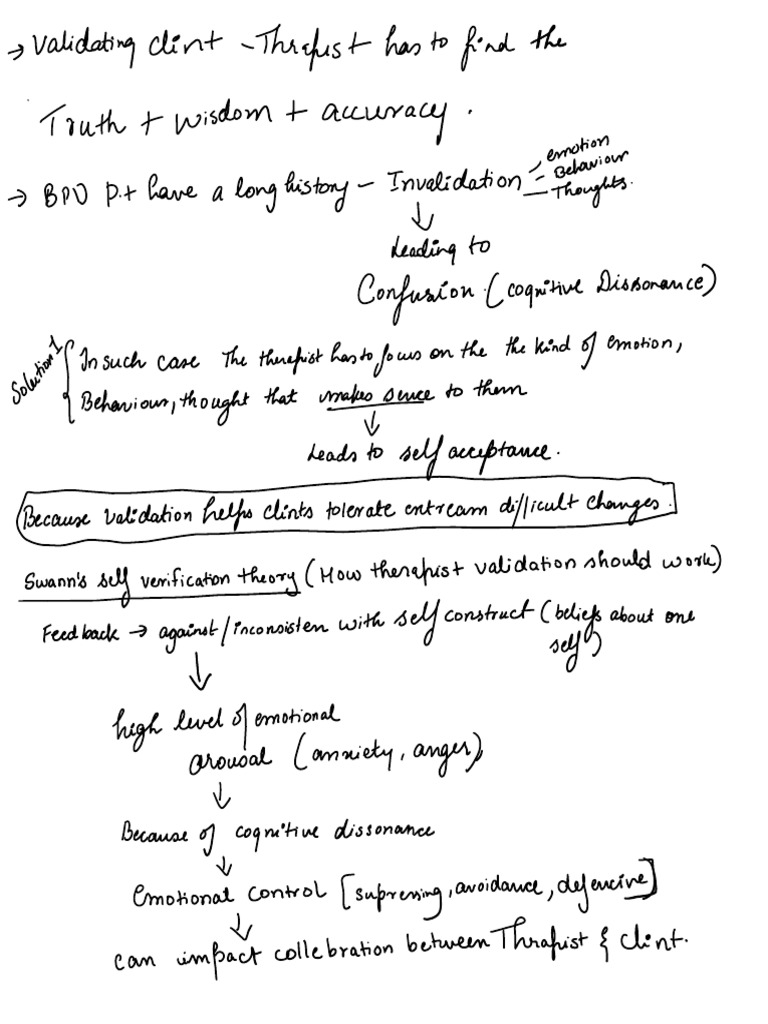 → Validating clint - Thrapist has to find the
Truth + wisdom + accuracy.
→ BPD p.t have a long history - Invalidation - emotion
- Behaviour
- Thoughts.
↓
Leading to
Confusion. (cognitive Dissonance)
Solection 1
In such case The therapist has to focus on the the kind of emotion,
Behaviour, thought that makes sence to them
↓
Leads to self acceptance.
Because validation helps clints tolerate entream difficult changes.
Swann's self verification theory (How therapist validation should work)
Feedback → against/inconsisten with self construct (beliefs about one
self)
↓
high level of emotional
arousal (anxiety, anger),
↓
Because of cognitive dissonance
↓
emotional control [supressing, avoidance, defencive]
↓
can impact collebration between Thrapist & clint.